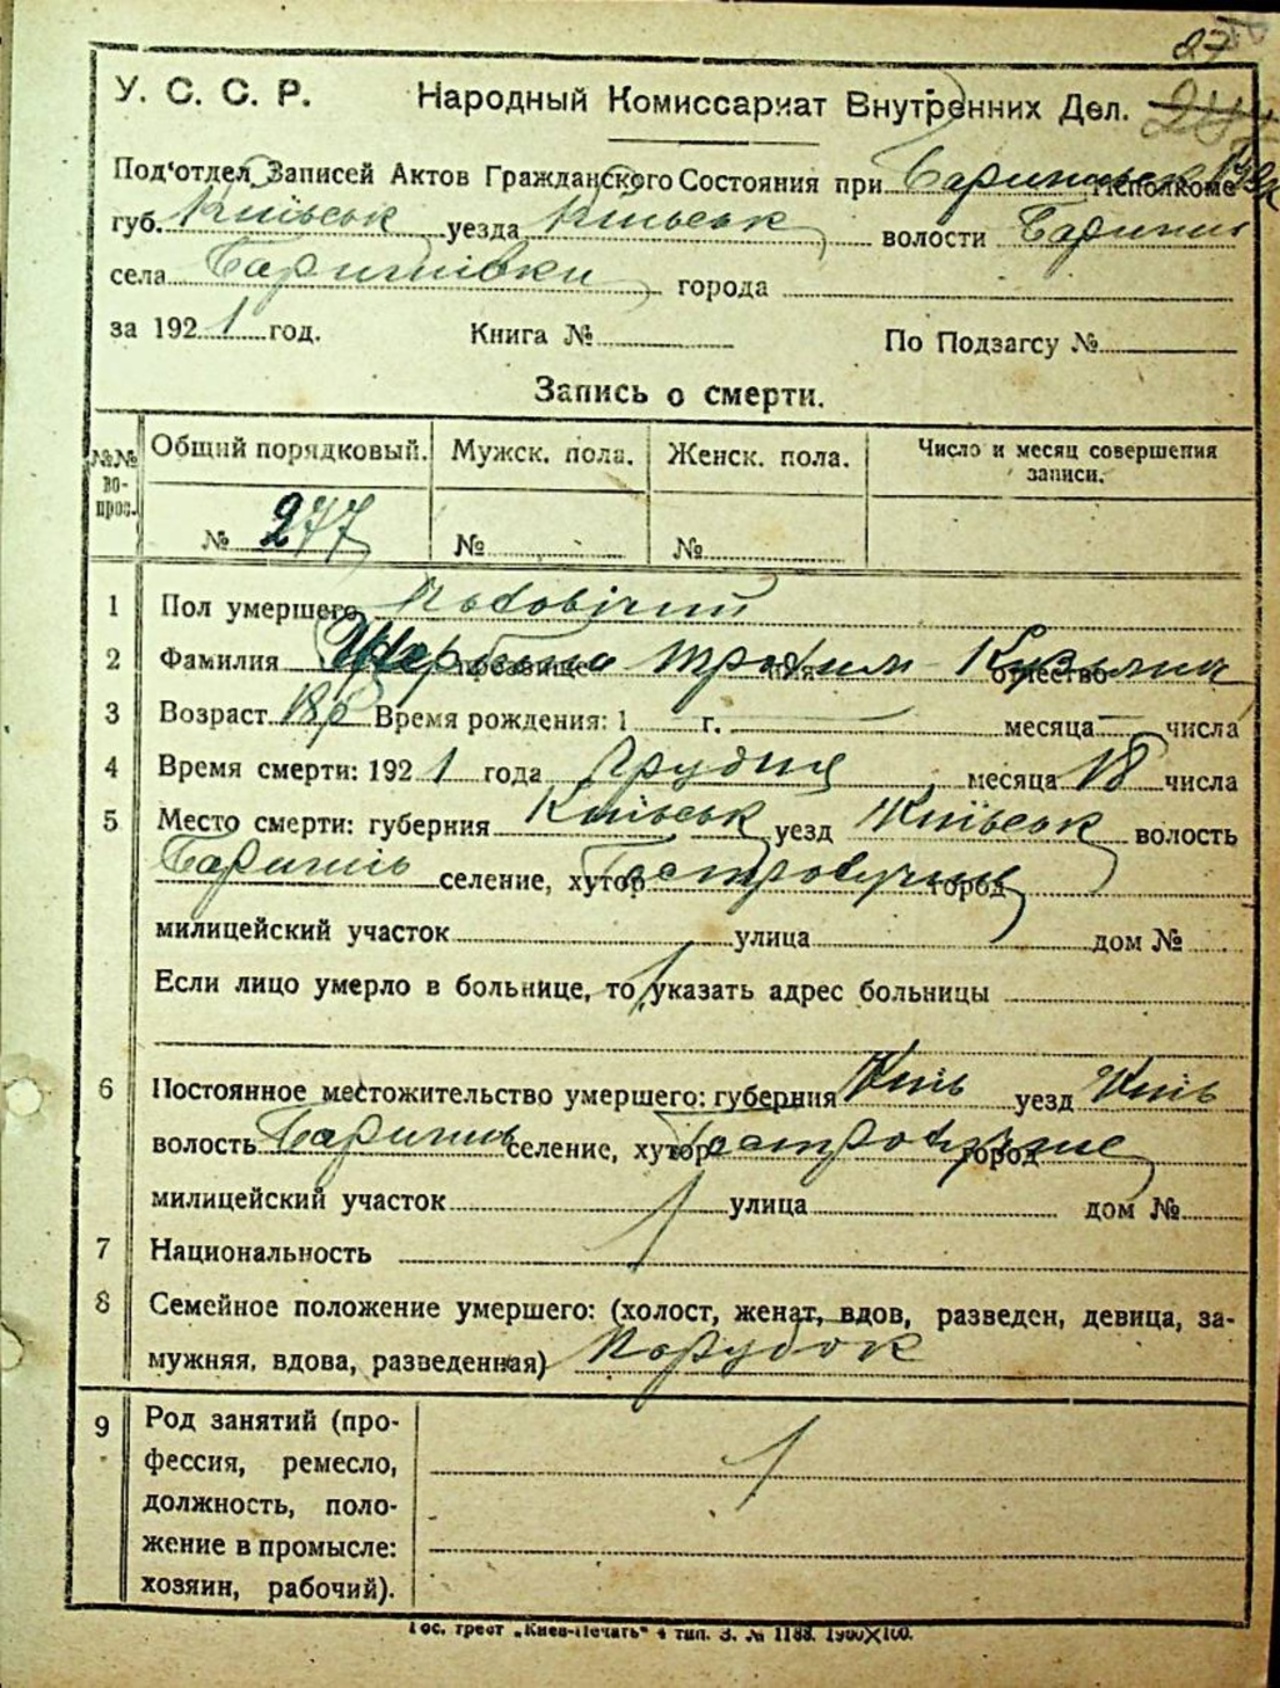 27
У. С. С. Р. Народный Комиссариат Внутренних Дел.
Под'отдел Записей Актов Гражданского Состояния при Исполкоме
губ. Київськ уезда Київськ волости Баришів
села Баришівки города
за 1921 год. Книга № По Подзагсу №
Запись о смерти.
№№ вопрос. Общий порядковый. Мужск. пола. Женск. пола. Число и месяц совершения записи.
№ 277 № №
1 Пол умершего чоловічий
2 Фамилия Щербина прозвище Трохим имя Кузьмич отчество
3 Возраст 18 р Время рождения: 1 г. месяца числа
4 Время смерти: 1921 года Грудня месяца 18 числа
5 Место смерти: губерния Київськ уезд Київськ волость
Баришів селение, хутор город
милицейский участок улица дом №
Если лицо умерло в больнице, то указать адрес больницы
6 Постоянное местожительство умершего: губерния Київ уезд Київ
волость Баришів селение, хутор город
милицейский участок улица дом №
7 Национальность
8 Семейное положение умершего: (холост, женат, вдов, разведен, девица, за-
мужняя, вдова, разведенная) Парубок
9 Род занятий (про-
фессия, ремесло,
должность, поло-
жение в промысле:
хозяин, рабочий).
Гос. трест „Киев-Печать" 4 тип. З. № 1188. 1900X100.